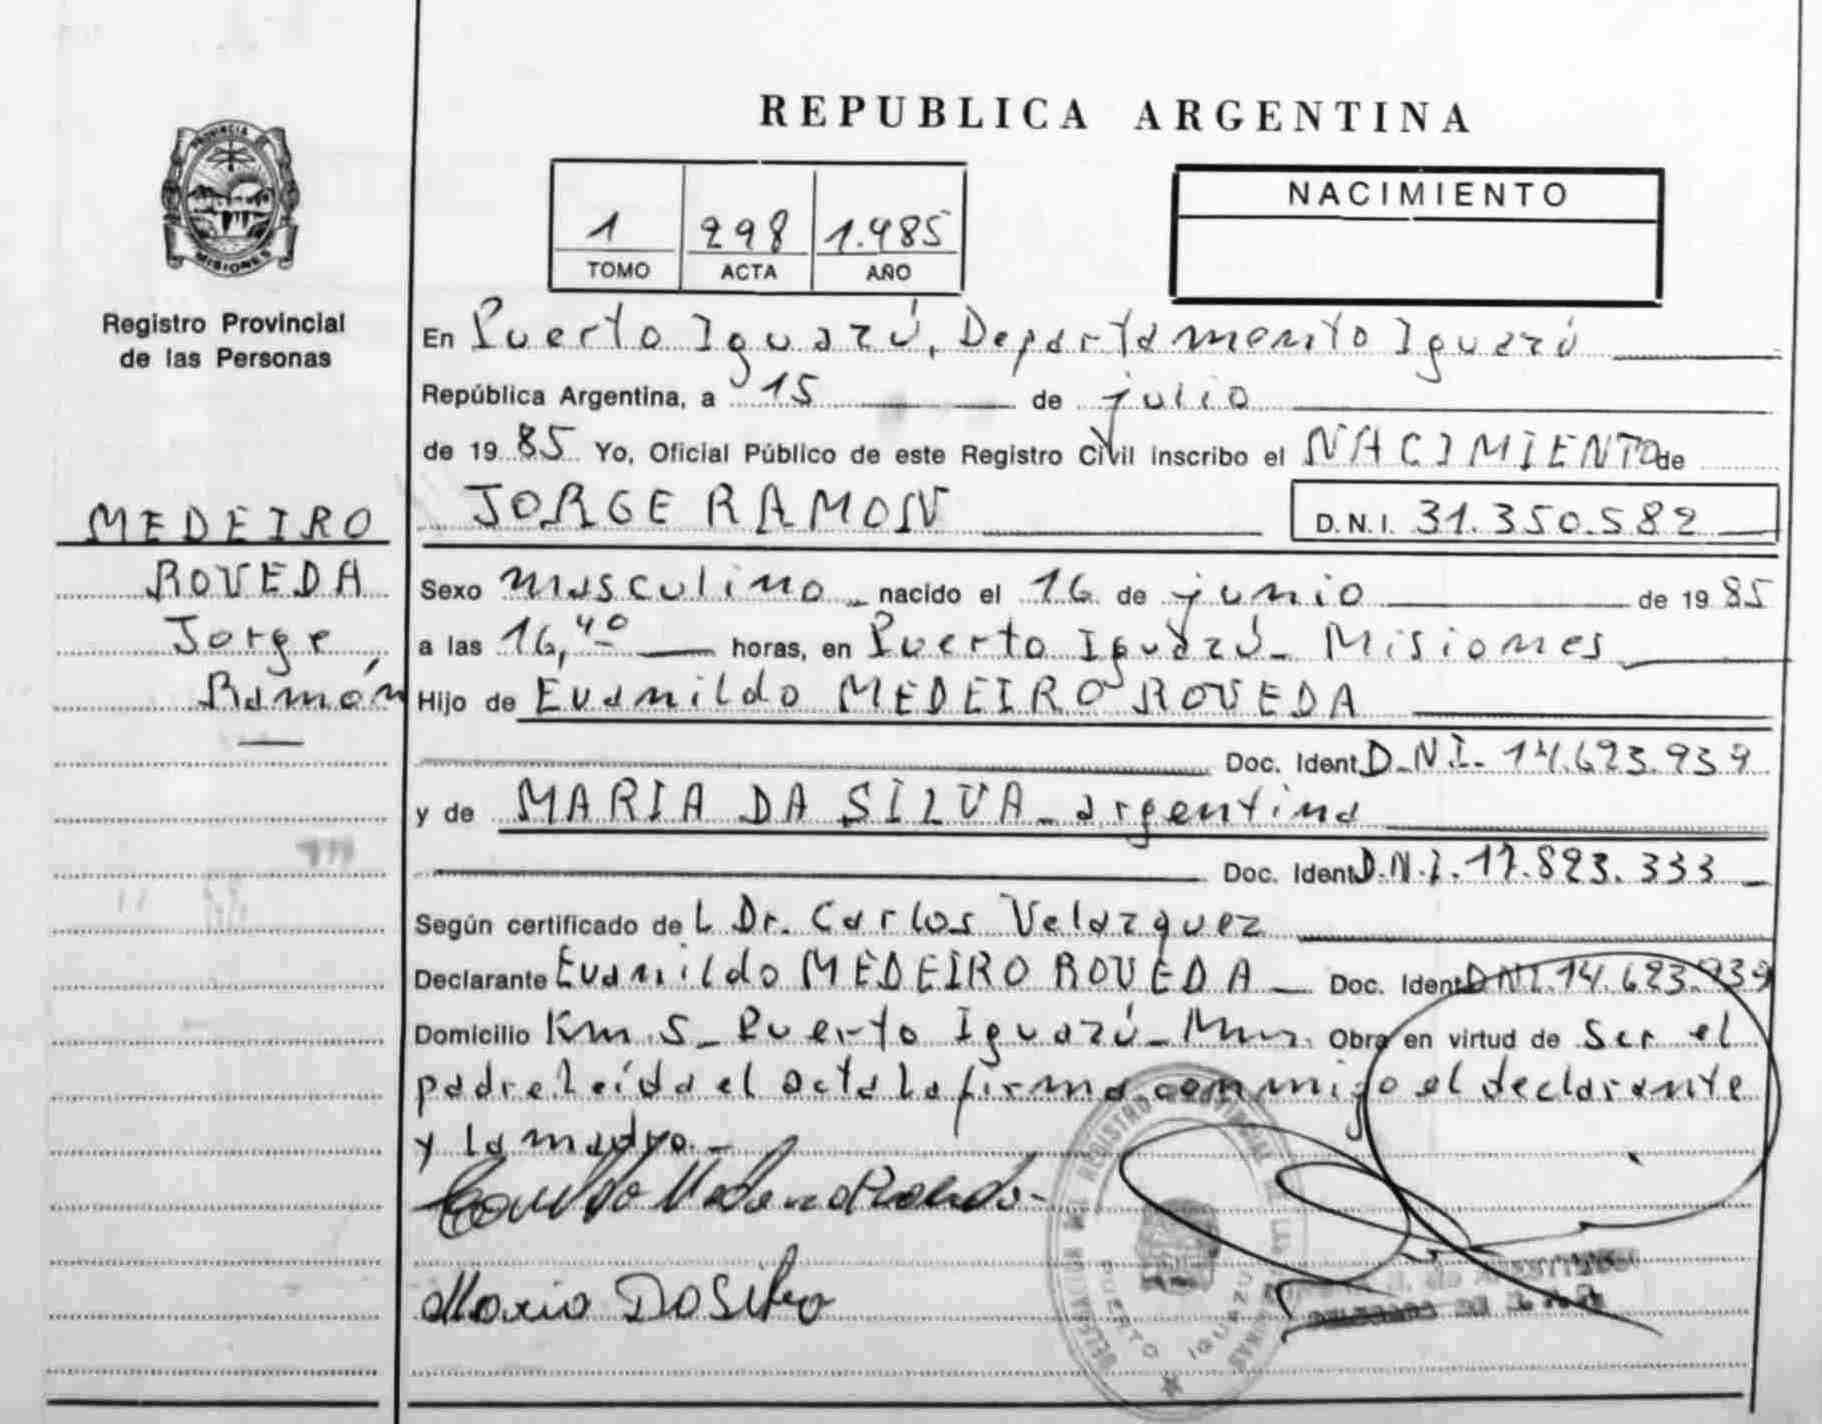 REPUBLICA ARGENTINA
PROVINCIA
MISIONES
Registro Provincial
de las Personas
MEDEIRO
ROVEDA
Jorge
Ramón
1 298 1.985
TOMO ACTA AÑO
NACIMIENTO
En Puerto Iguazú, Departamento Iguazú
República Argentina, a 15 de julio
de 1985 Yo, Oficial Público de este Registro Civil inscribo el NACIMIENTO de
JORGE RAMON D.N.I. 31.350.582
Sexo masculino nacido el 16 de junio de 1985
a las 16,40 horas, en Puerto Iguazú - Misiones
Hijo de Evanildo MEDEIRO ROVEDA
Doc. Ident D.N.I. 14.623.939
y de MARIA DA SILVA - argentina
Doc. Ident D.N.I. 17.823.333
Según certificado de L Dr. Carlos Velazquez
Declarante Evanildo MEDEIRO ROVEDA - Doc. Ident DNI. 14.623.939
Domicilio Km 5 - Puerto Iguazú - Mnes. Obra en virtud de ser el
padre leída el acta la firma conmigo el declarante
y la madre.-
Maria Da Silva
DELEGACION DEL REGISTRO PROVINCIAL DE LAS PERSONAS
PUERTO IGUAZU